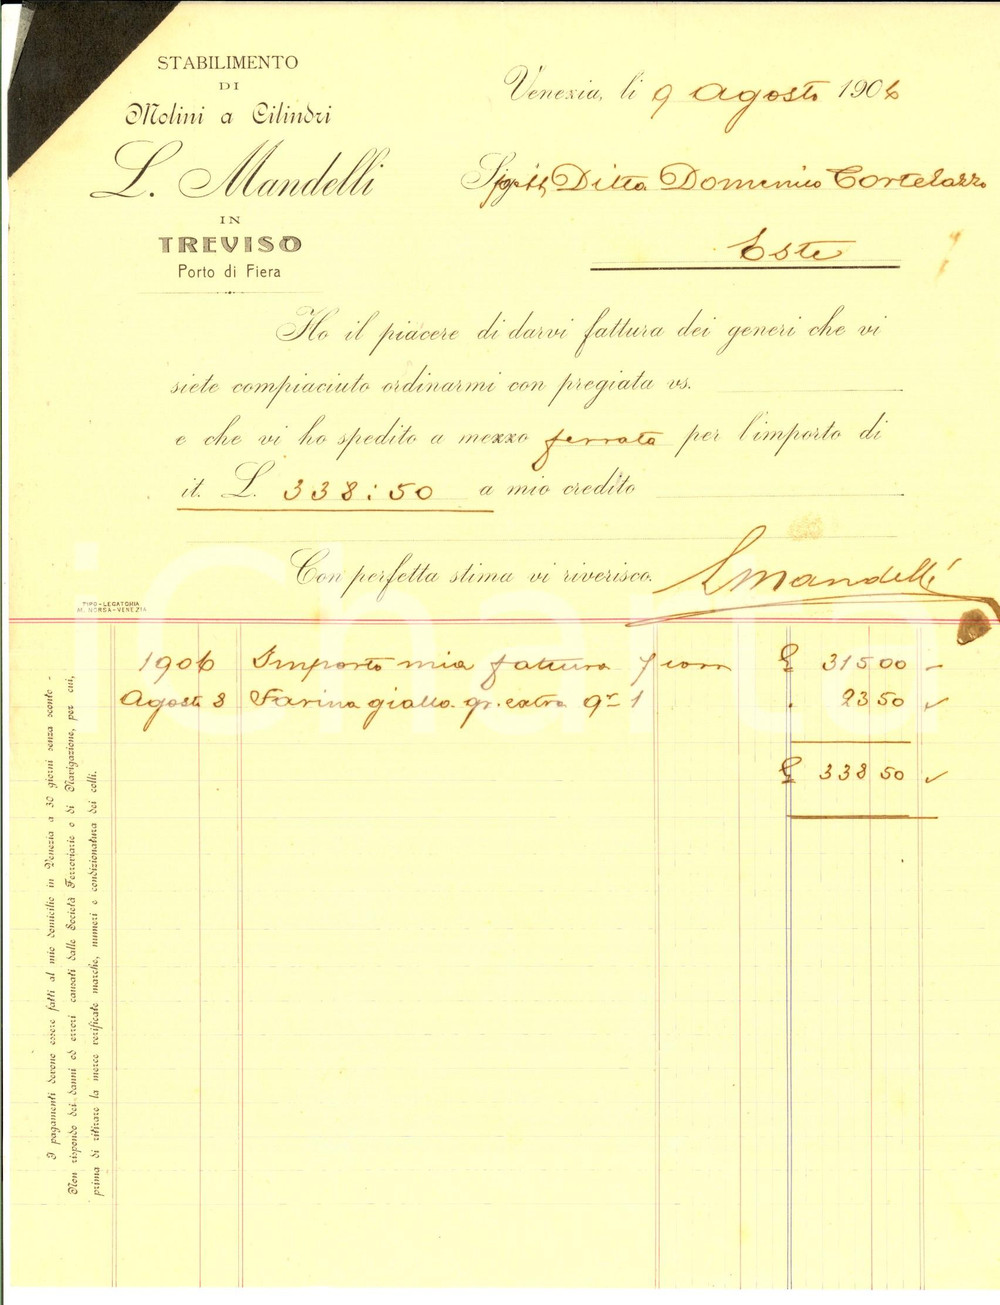 STABILIMENTO
DI
Molini a Cilindri
L. Mandelli
IN
TREVISO
Porto di Fiera
Venezia, li 9 Agosto 1906
Ditta Domenico Cortelazzo
Este
Ho il piacere di darvi fattura dei generi che vi
siete compiaciuto ordinarmi con pregiata vs.
e che vi ho spedito a mezzo ferrata per l'importo di
it. L. 338:50 a mio credito
Con perfetta stima vi riverisco.
LMandelli
TIPO-LEGATORIA
M. NORSA-VENEZIA
1906 Importo mia fattura 7 corr £ 315 00
Agosto 8 Farina gialla gr. extra q.r 1 23 50
£ 338 50
I pagamenti devono essere fatti al mio domicilio in Venezia a 30 giorni senza sconto -
Non rispondo dei danni ed errori causati dalle Società Ferroviarie o di Navigazione, per cui,
prima di ritirare la merce verificate marche, numeri e condizionatura dei colli.
iCharta